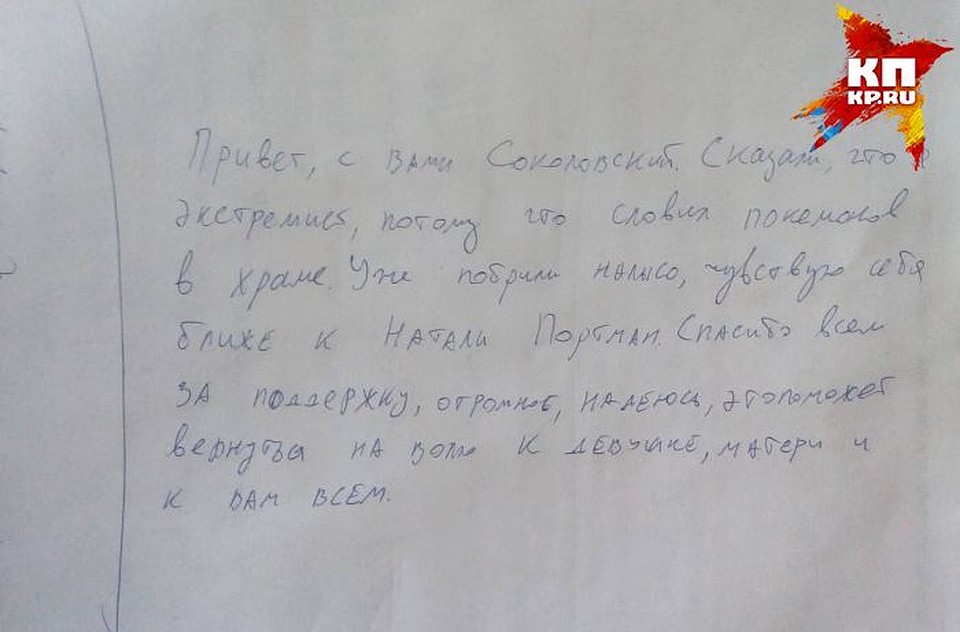 КП
KP.RU
Привет, с вами Соколовский. Сказали, что я
экстремист, потому что словил покемонов
в храме. Уже побрили налысо, чувствую себя
ближе к Натали Портман. Спасибо всем
за поддержку, огромное, надеюсь, это поможет
вернуться на волю к девушке, матери и
к вам всем.